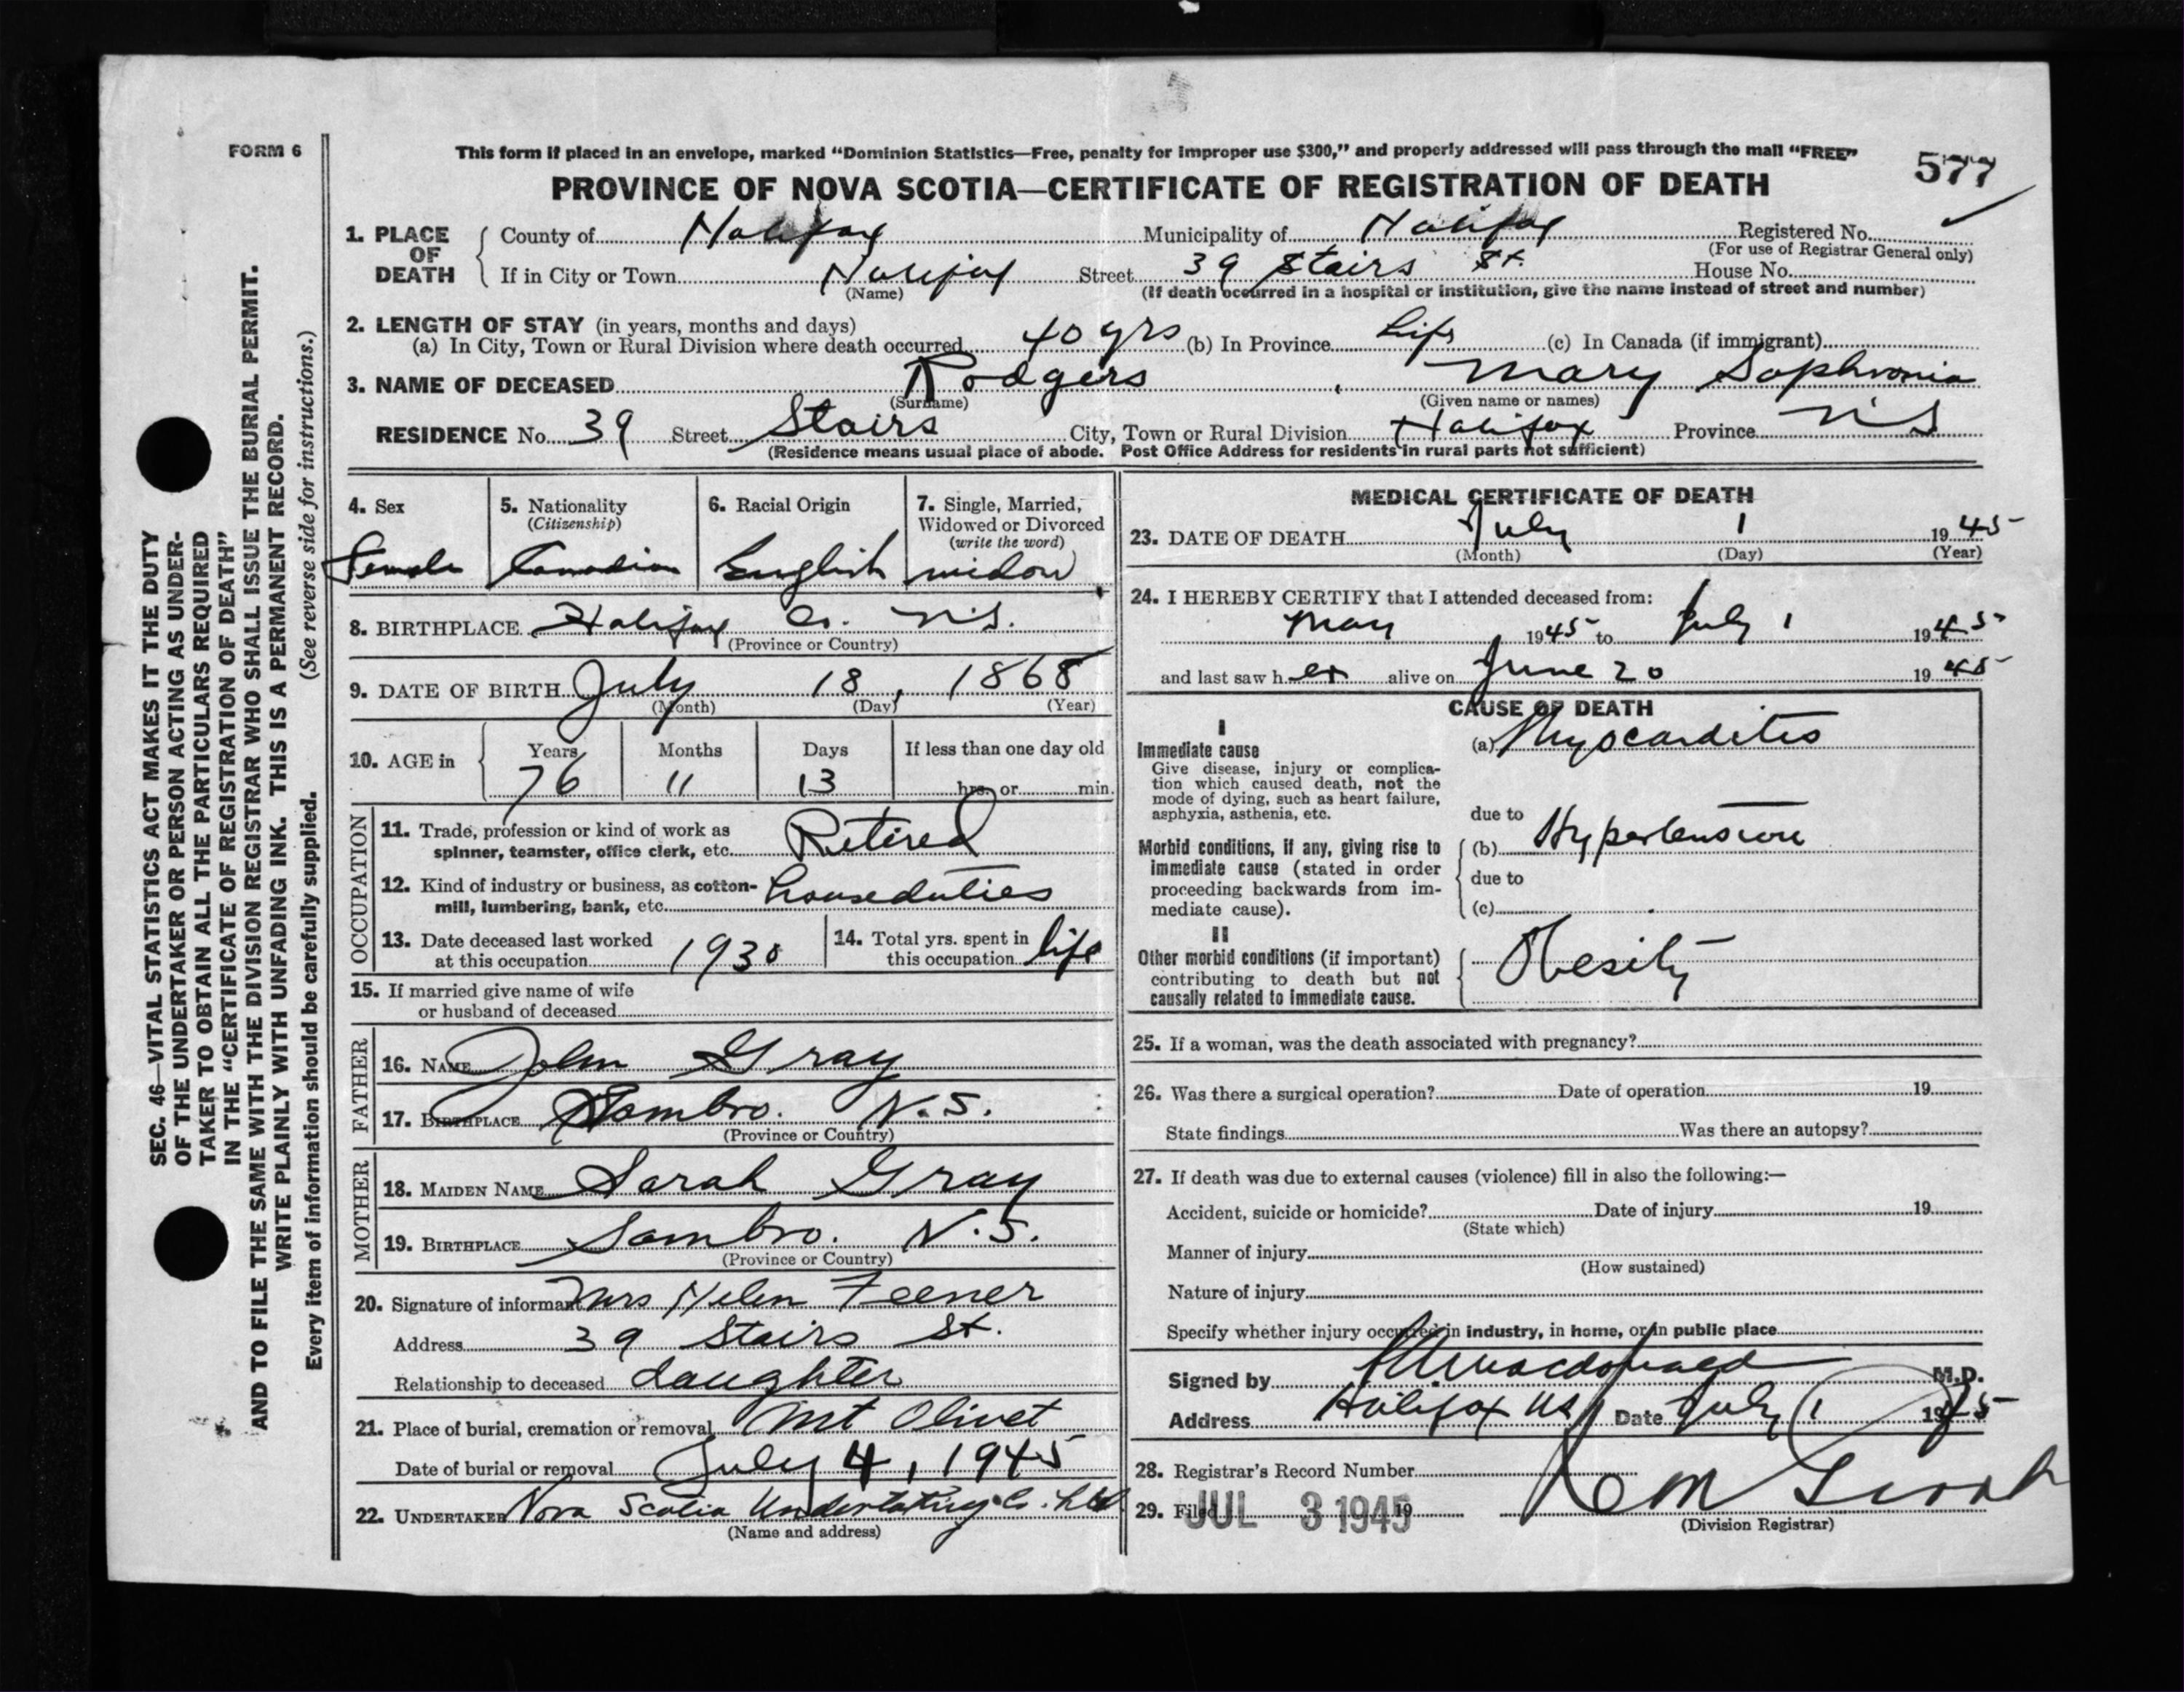 FORM 6
This form if placed in an envelope, marked "Dominion Statistics—Free, penalty for improper use $300," and properly addressed will pass through the mail "FREE"
577
PROVINCE OF NOVA SCOTIA—CERTIFICATE OF REGISTRATION OF DEATH
1. PLACE OF DEATH
County of Halifax Municipality of Halifax Registered No.
(For use of Registrar General only)
If in City or Town Halifax Street 39 Stairs St. House No.
(Name) (If death occurred in a hospital or institution, give the name instead of street and number)
2. LENGTH OF STAY (in years, months and days)
(a) In City, Town or Rural Division where death occurred 40 yrs (b) In Province Life (c) In Canada (if immigrant)
3. NAME OF DECEASED Rodgers, Mary Sophronia
(Surname) (Given name or names)
RESIDENCE No. 39 Street Stairs City, Town or Rural Division Halifax Province N.S
(Residence means usual place of abode. Post Office Address for residents in rural parts not sufficient)
4. Sex
Female
5. Nationality
(Citizenship)
Canadian
6. Racial Origin
English
7. Single, Married,
Widowed or Divorced
(write the word)
widow
8. BIRTHPLACE Halifax Co. N.S.
(Province or Country)
9. DATE OF BIRTH July 18, 1868
(Month) (Day) (Year)
10. AGE in
Years Months Days If less than one day old
76 11 13 hrs. or min.
OCCUPATION
11. Trade, profession or kind of work as
spinner, teamster, office clerk, etc. Retired
12. Kind of industry or business, as cotton-
mill, lumbering, bank, etc. houseduties
13. Date deceased last worked
at this occupation 1930
14. Total yrs. spent in
this occupation life
15. If married give name of wife
or husband of deceased
FATHER
16. NAME John Gray
17. BIRTHPLACE Sambro. N.S.
(Province or Country)
MOTHER
18. MAIDEN NAME Sarah Gray
19. BIRTHPLACE Sambro. N.S.
(Province or Country)
20. Signature of informant Mrs Helen Feener
Address 39 Stairs St.
Relationship to deceased daughter
21. Place of burial, cremation or removal Mt Olivet
Date of burial or removal July 4, 1945
22. UNDERTAKER Nova Scotia Undertaking Co. Ltd
(Name and address)
MEDICAL CERTIFICATE OF DEATH
23. DATE OF DEATH July 1 1945
(Month) (Day) (Year)
24. I HEREBY CERTIFY that I attended deceased from:
May 1945 to July 1 1945
and last saw her alive on June 20 1945
CAUSE OF DEATH
I
Immediate cause
Give disease, injury or complica-
tion which caused death, not the
mode of dying, such as heart failure,
asphyxia, asthenia, etc.
(a) Myocarditis
due to
Morbid conditions, if any, giving rise to
immediate cause (stated in order
proceeding backwards from im-
mediate cause).
(b) Hypertension
due to
(c)
II
Other morbid conditions (if important)
contributing to death but not
causally related to immediate cause.
Obesity
25. If a woman, was the death associated with pregnancy?
26. Was there a surgical operation? Date of operation 19
State findings Was there an autopsy?
27. If death was due to external causes (violence) fill in also the following:—
Accident, suicide or homicide? Date of injury 19
(State which)
Manner of injury
(How sustained)
Nature of injury
Specify whether injury occurred in industry, in home, or in public place
Signed by Macdonald M.D.
Address Halifax NS Date July 1 1945
28. Registrar's Record Number
29. Filed JUL 3 1945 19
(Division Registrar)
SEC. 46—VITAL STATISTICS ACT MAKES IT THE DUTY
OF THE UNDERTAKER OR PERSON ACTING AS UNDER-
TAKER TO OBTAIN ALL THE PARTICULARS REQUIRED
IN THE "CERTIFICATE OF REGISTRATION OF DEATH"
AND TO FILE THE SAME WITH THE DIVISION REGISTRAR WHO SHALL ISSUE THE BURIAL PERMIT.
WRITE PLAINLY WITH UNFADING INK. THIS IS A PERMANENT RECORD.
Every item of information should be carefully supplied. (See reverse side for instructions.)